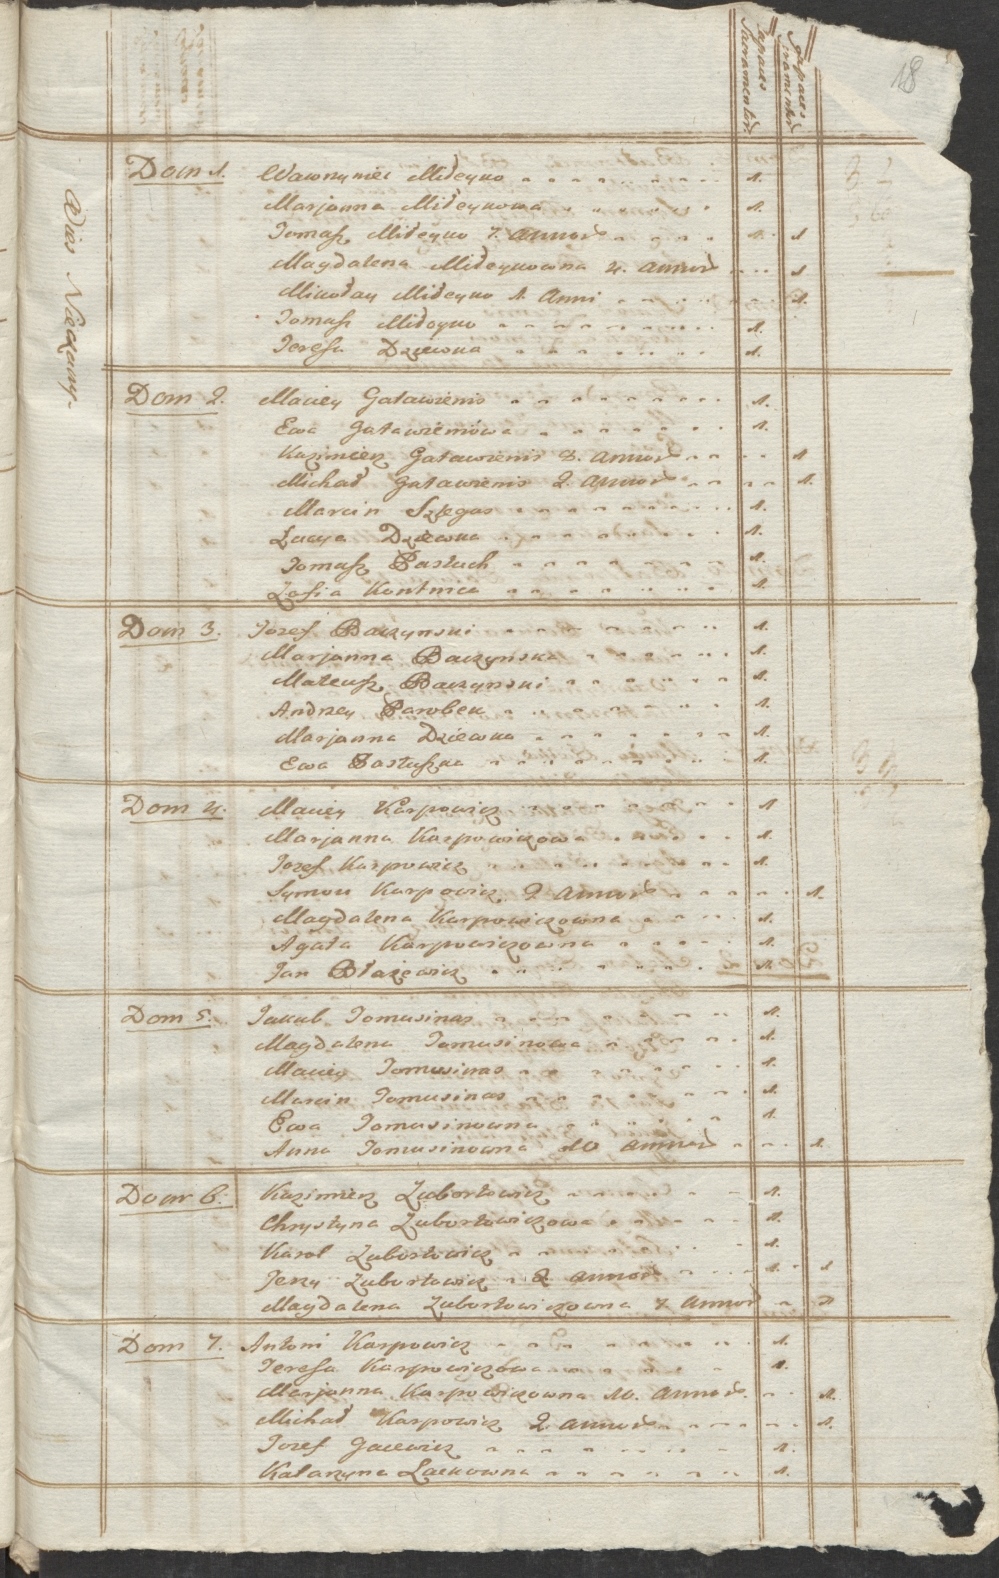 18
Capaces Sacramentor.
Dom 1. Wawrzyniec Mideyko 1.
Marjanna Mideykowa 1.
Tomasz Mideyko 7. annor 1. 1
Magdalena Mideykowna 4. annor 1
Mikołay Mideyko 1. Anni 1.
Tomasz Mideyko 1.
Teresa Dziewka 1.
Dom 2. Maciey Gatawienis 1.
Ewa Gatawieniowa 1.
Kazimierz Gatawienis 8. annor 1
Michał Gatawienis 2. annor 1.
Marcin 1.
Łucya Dziewka 1.
Tomasz Pastuch 1.
Zofia Kontnica 1.
Dom 3. Jozef Baczynski 1.
Marjanna Baczynska 1.
Mateusz Baczynski 1.
Andrzey Parobek 1.
Marjanna Dziewka 1.
Ewa Pastuszka 1.
Dom 4. Maciey Karpowicz 1
Marjanna Karpowiczowa 1.
Jozef Karpowicz 1.
Symon Karpowicz 2 annor 1.
Magdalena Karpowiczowna 1.
Agata Karpowiczowna 1.
Jan Błażewicz 1.
Dom 5. Jakub Tomusinas 1.
Magdalena Tomusinowa 1.
Maciey Tomusinas 1.
Marcin Tomusinas 1.
Ewa Tomusinowna 1.
Anna Tomusinowna 10 annor 1.
Dom 6. Kazimierz Zubortowicz 1.
Chrystyna Zubortowiczowa 1.
Karol Zubortowicz 1.
Jerzy Zubortowicz 2. annor 1. 1
Magdalena Zubortowiczowna 7 annor 1
Dom 7. Antoni Karpowicz 1.
Teresa Karpowiczowa 1.
Marjanna Karpowiczowna 10. annor 1.
Michał Karpowicz 2 annor 1.
Jozef Gacewicz 1.
Katarzyna Łackowna 1.